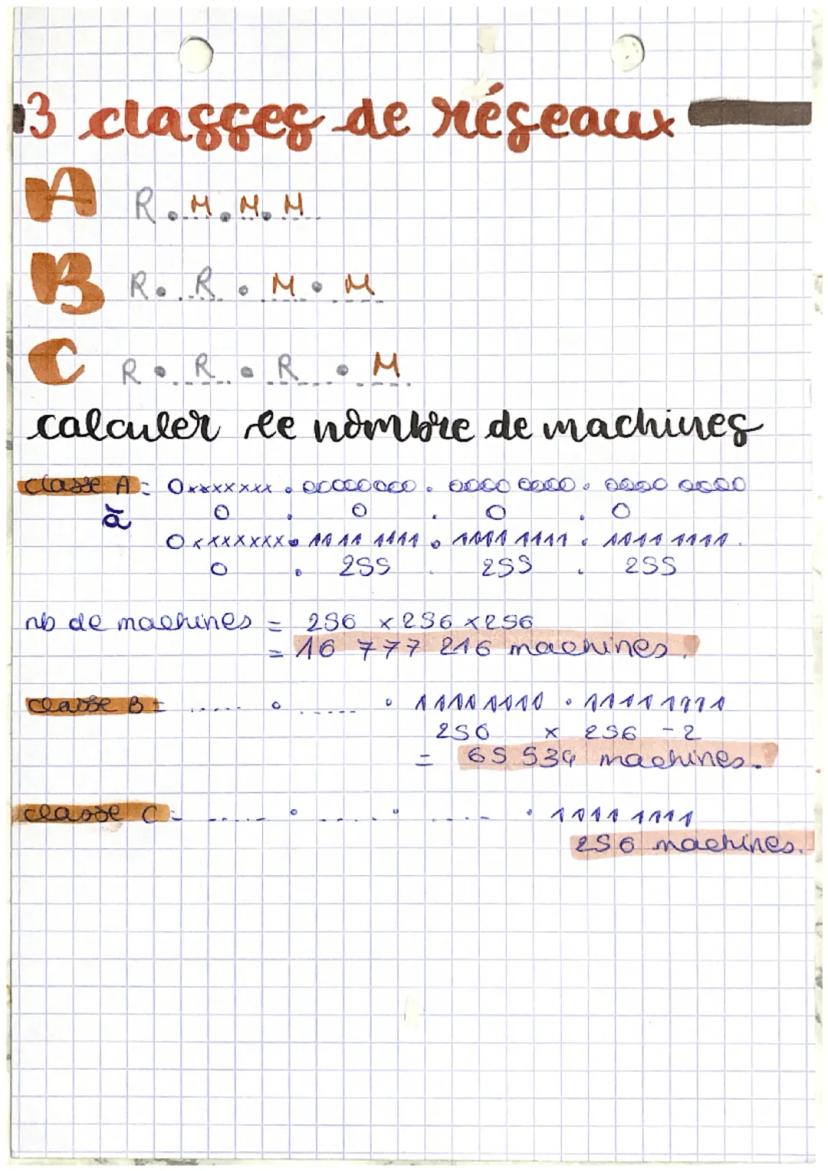 3 classes de réseaux
A R.M.M.M
B R.R.M.M
C R.R.R.M
calculer le nombre de machines
classe A : 0xxxxxxx . 00000000 . 0000 0000 . 0000 0000
à 0 . 0 . 0 . 0
0xxxxxxx . 1111 1111 . 1111 1111 . 1111 1111.
0 . 255 . 255 . 255
nb de machines = 256 x 256 x 256
= 16 777 216 machines.
classe B = ..... . ..... . 11111111 . 11111111
256 x 256 - 2
= 65 534 machines.
classe C = ..... . ..... . ..... . 1111 1111
256 machines.